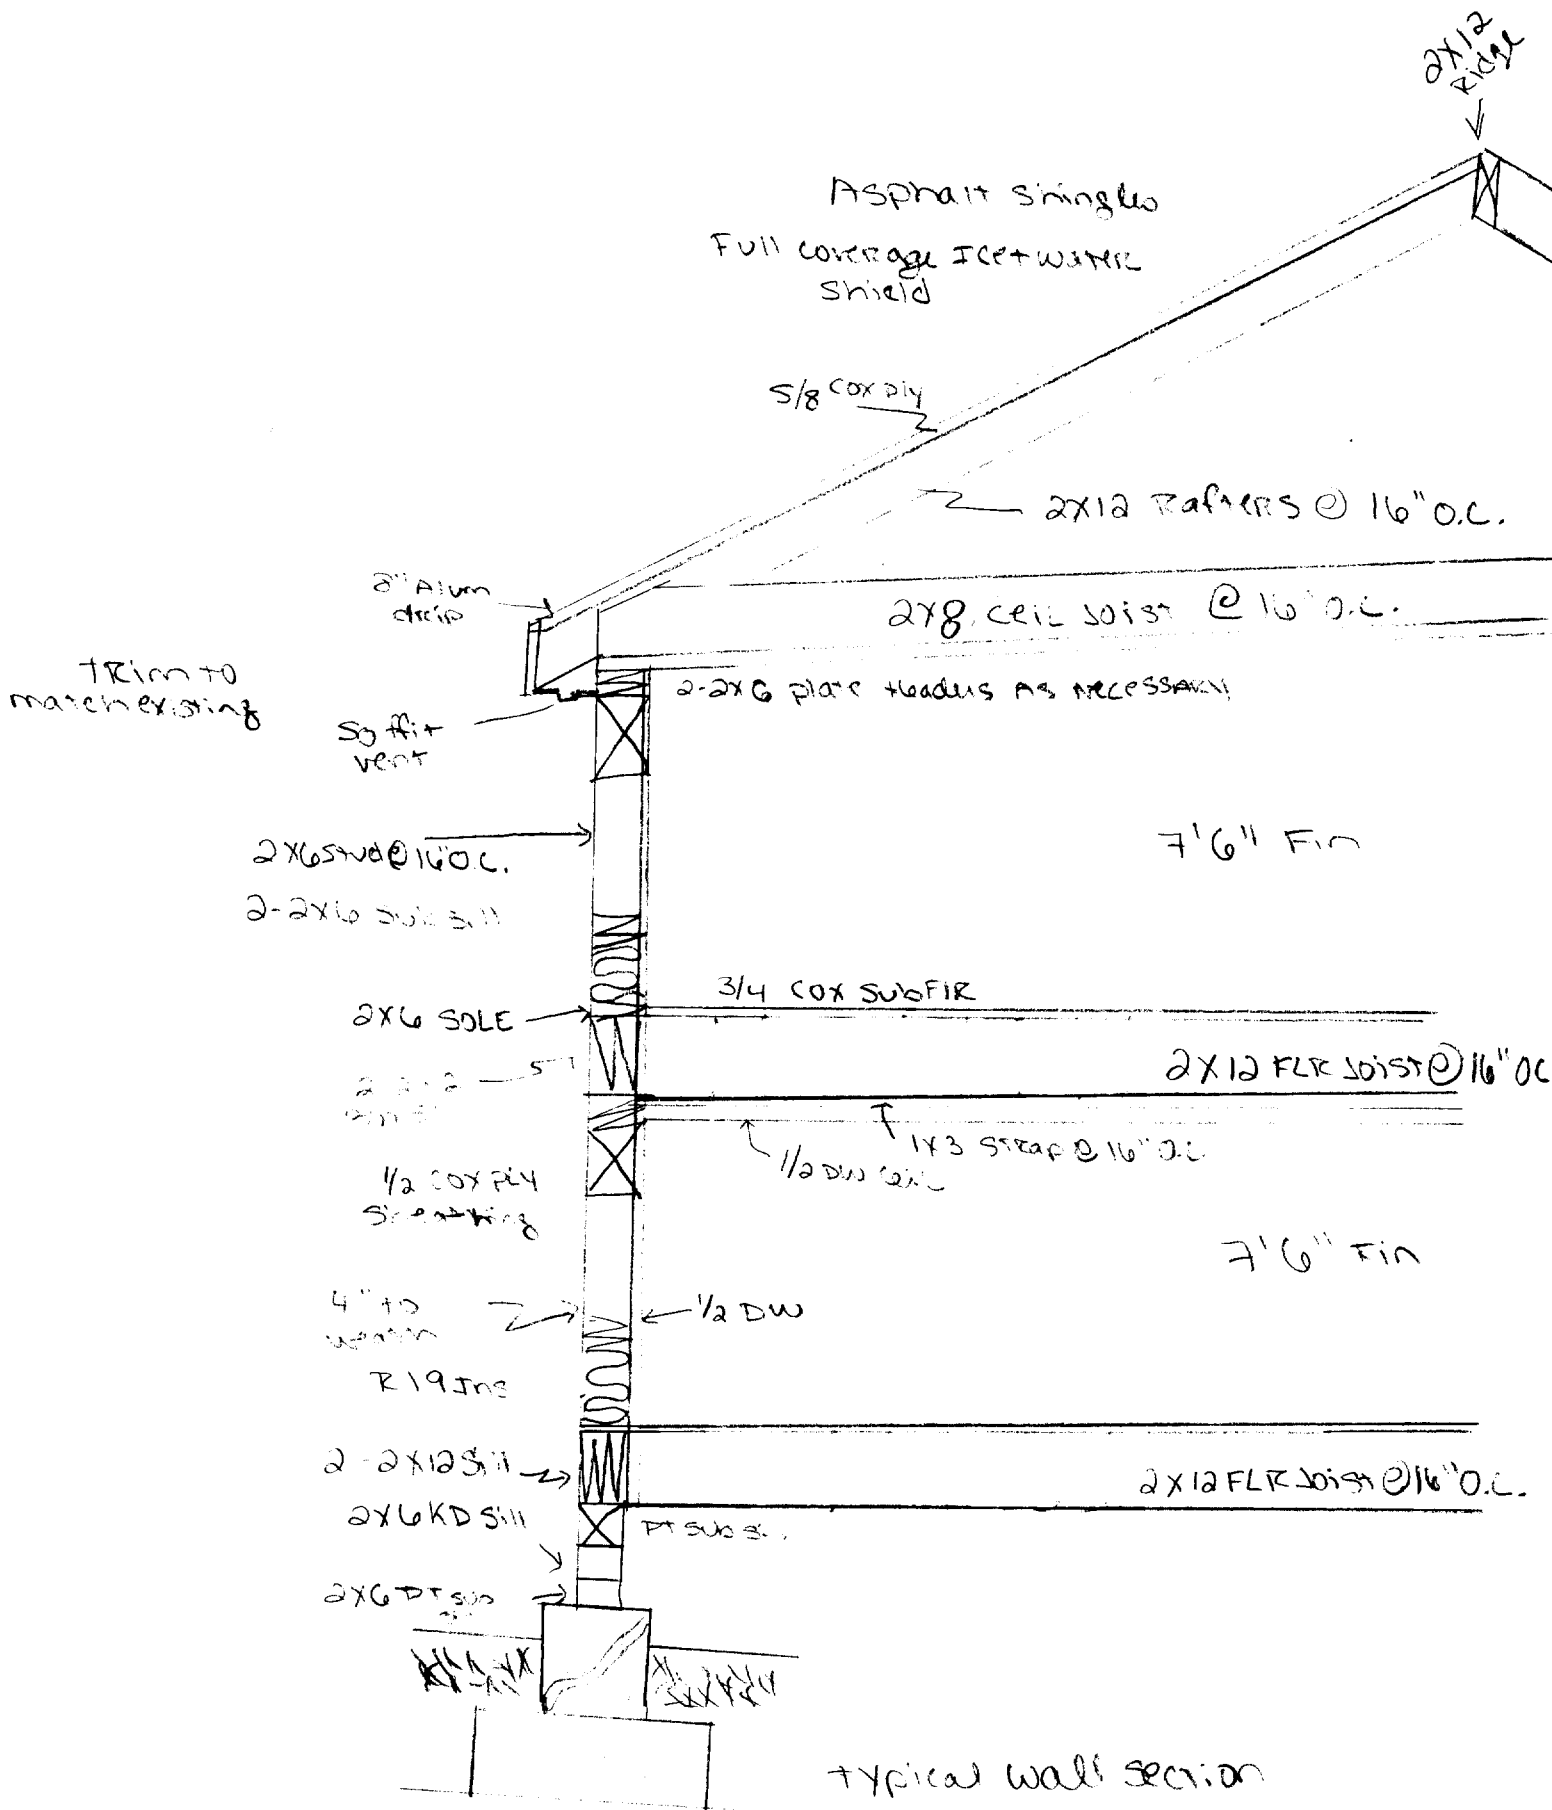 2X12
Ridge
Asphalt shingles
Full coverage Ice+water
Shield
5/8 CDX ply
2X12 Rafters @ 16" O.C.
8" Alum
drip
2X8 ceil joist @ 16" O.C.
trim to
match existing
2-2X6 plate Headers As necessary
Soffit
vent
2X6 stud @ 16" O.C.
7'6" Fin
2-2X6 sub sill
3/4 CDX SubFlr
2X6 SOLE
2X12 FLR Joist @ 16" OC
1X3 strap @ 16" O.C.
1/2 DW ceil
1/2 CDX Ply
sheathing
7'6" Fin
4" to
1/2 DW
R19 Ins
2-2X12 Sill
2X12 FLR Joist @ 16" O.C.
2X6 KD Sill
PT sub
2X6 PT sub
typical wall section